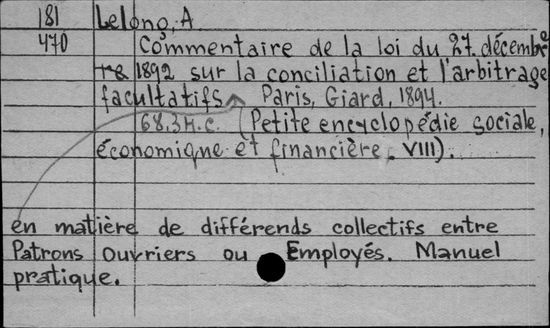 181 Lelong, A.
470 Commentaire de la loi du 27. décemb
re 1892 sur la conciliation et l'arbitrage
facultatifs Paris, Giard, 1894.
68,3 H.C. (Petite encyclopédie sociale,
économique et financière. VIII).
en matière de différends collectifs entre
Patrons Ouvriers ou Employés. Manuel
pratique.